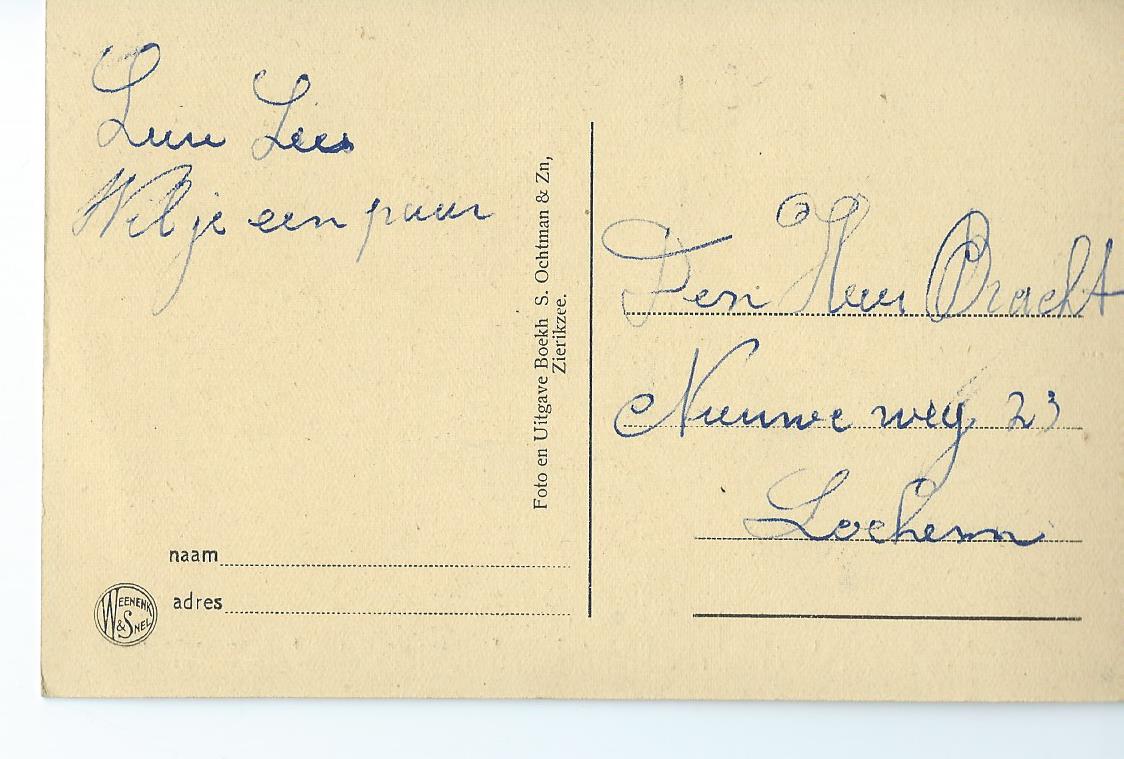 Lieve Lies
Wil je een paar
Foto en Uitgave Boekh S. Ochtman & Zn,
Zierikzee.
Den Heer Bracht
Nieuwe weg 23
Lochem
naam
adres
WEENENK
& SNEL